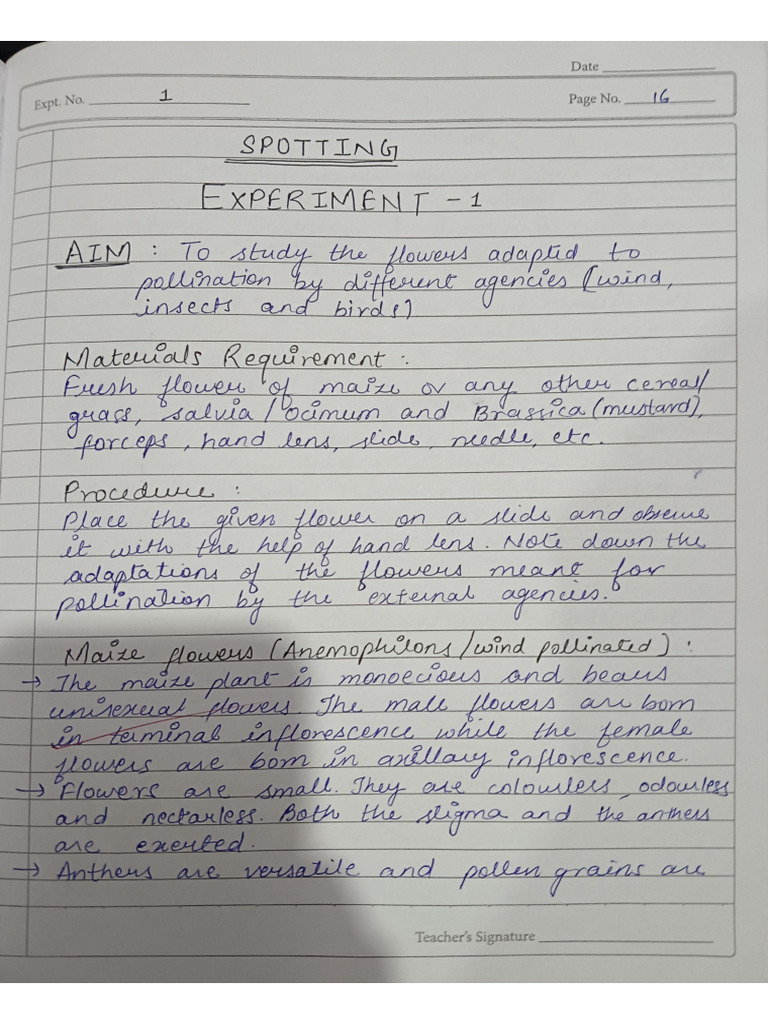 Date
Expt. No. 1
Page No. 16
SPOTTING
EXPERIMENT - 1
AIM : To study the flowers adapted to
pollination by different agencies (wind,
insects and birds)
Materials Requirement :
Fresh flower of maize or any other cereal/
grass, salvia/ocimum and Brassica (mustard),
forceps, hand lens, slide, needle, etc.
Procedure :
Place the given flower on a slide and observe
it with the help of hand lens. Note down the
adaptations of the flowers meant for
pollination by the external agencies.
Maize flowers (Anemophilons/wind pollinated) :
→ The maize plant is monoecious and bears
unisexual flowers. The male flowers are born
in terminal inflorescence while the female
flowers are born in axillary inflorescence.
→ Flowers are small. They are colourless, odourless
and nectarless. Both the stigma and the anthers
are exerted.
→ Anthers are versatile and pollen grains are
Teacher's Signature